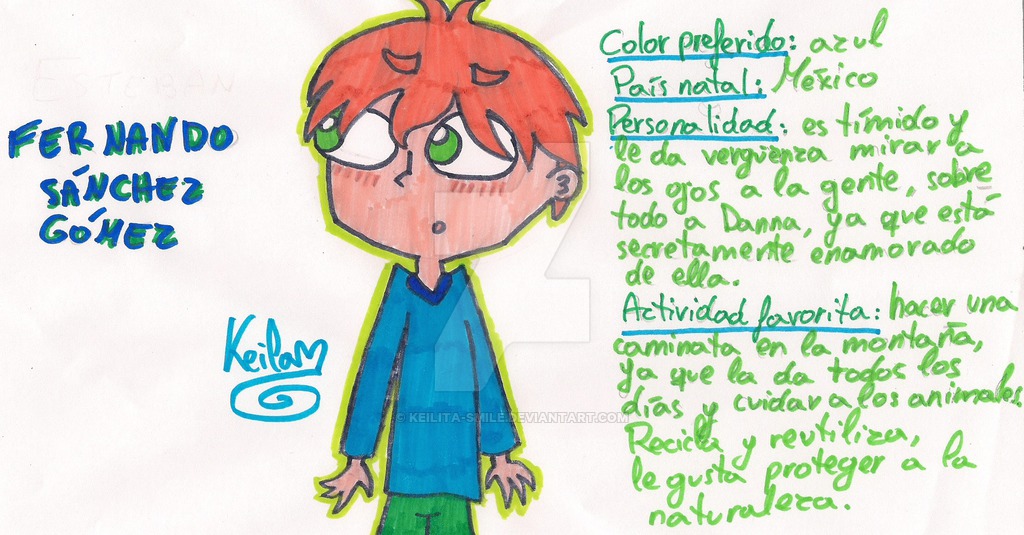 ESTEBAN
FERNANDO
SÁNCHEZ
GÓMEZ
Keilam
Color preferido: azul
País natal: México
Personalidad: es tímido y
le da vergüenza mirar a
los ojos a la gente, sobre
todo a Danna, ya que está
secretamente enamorado
de ella.
Actividad favorita: hacer una
caminata en la montaña,
ya que la da todos los
días y cuidar a los animales.
Recicla y reutiliza,
le gusta proteger a la
naturaleza.
© KEILITA-SMILE.DEVIANTART.COM